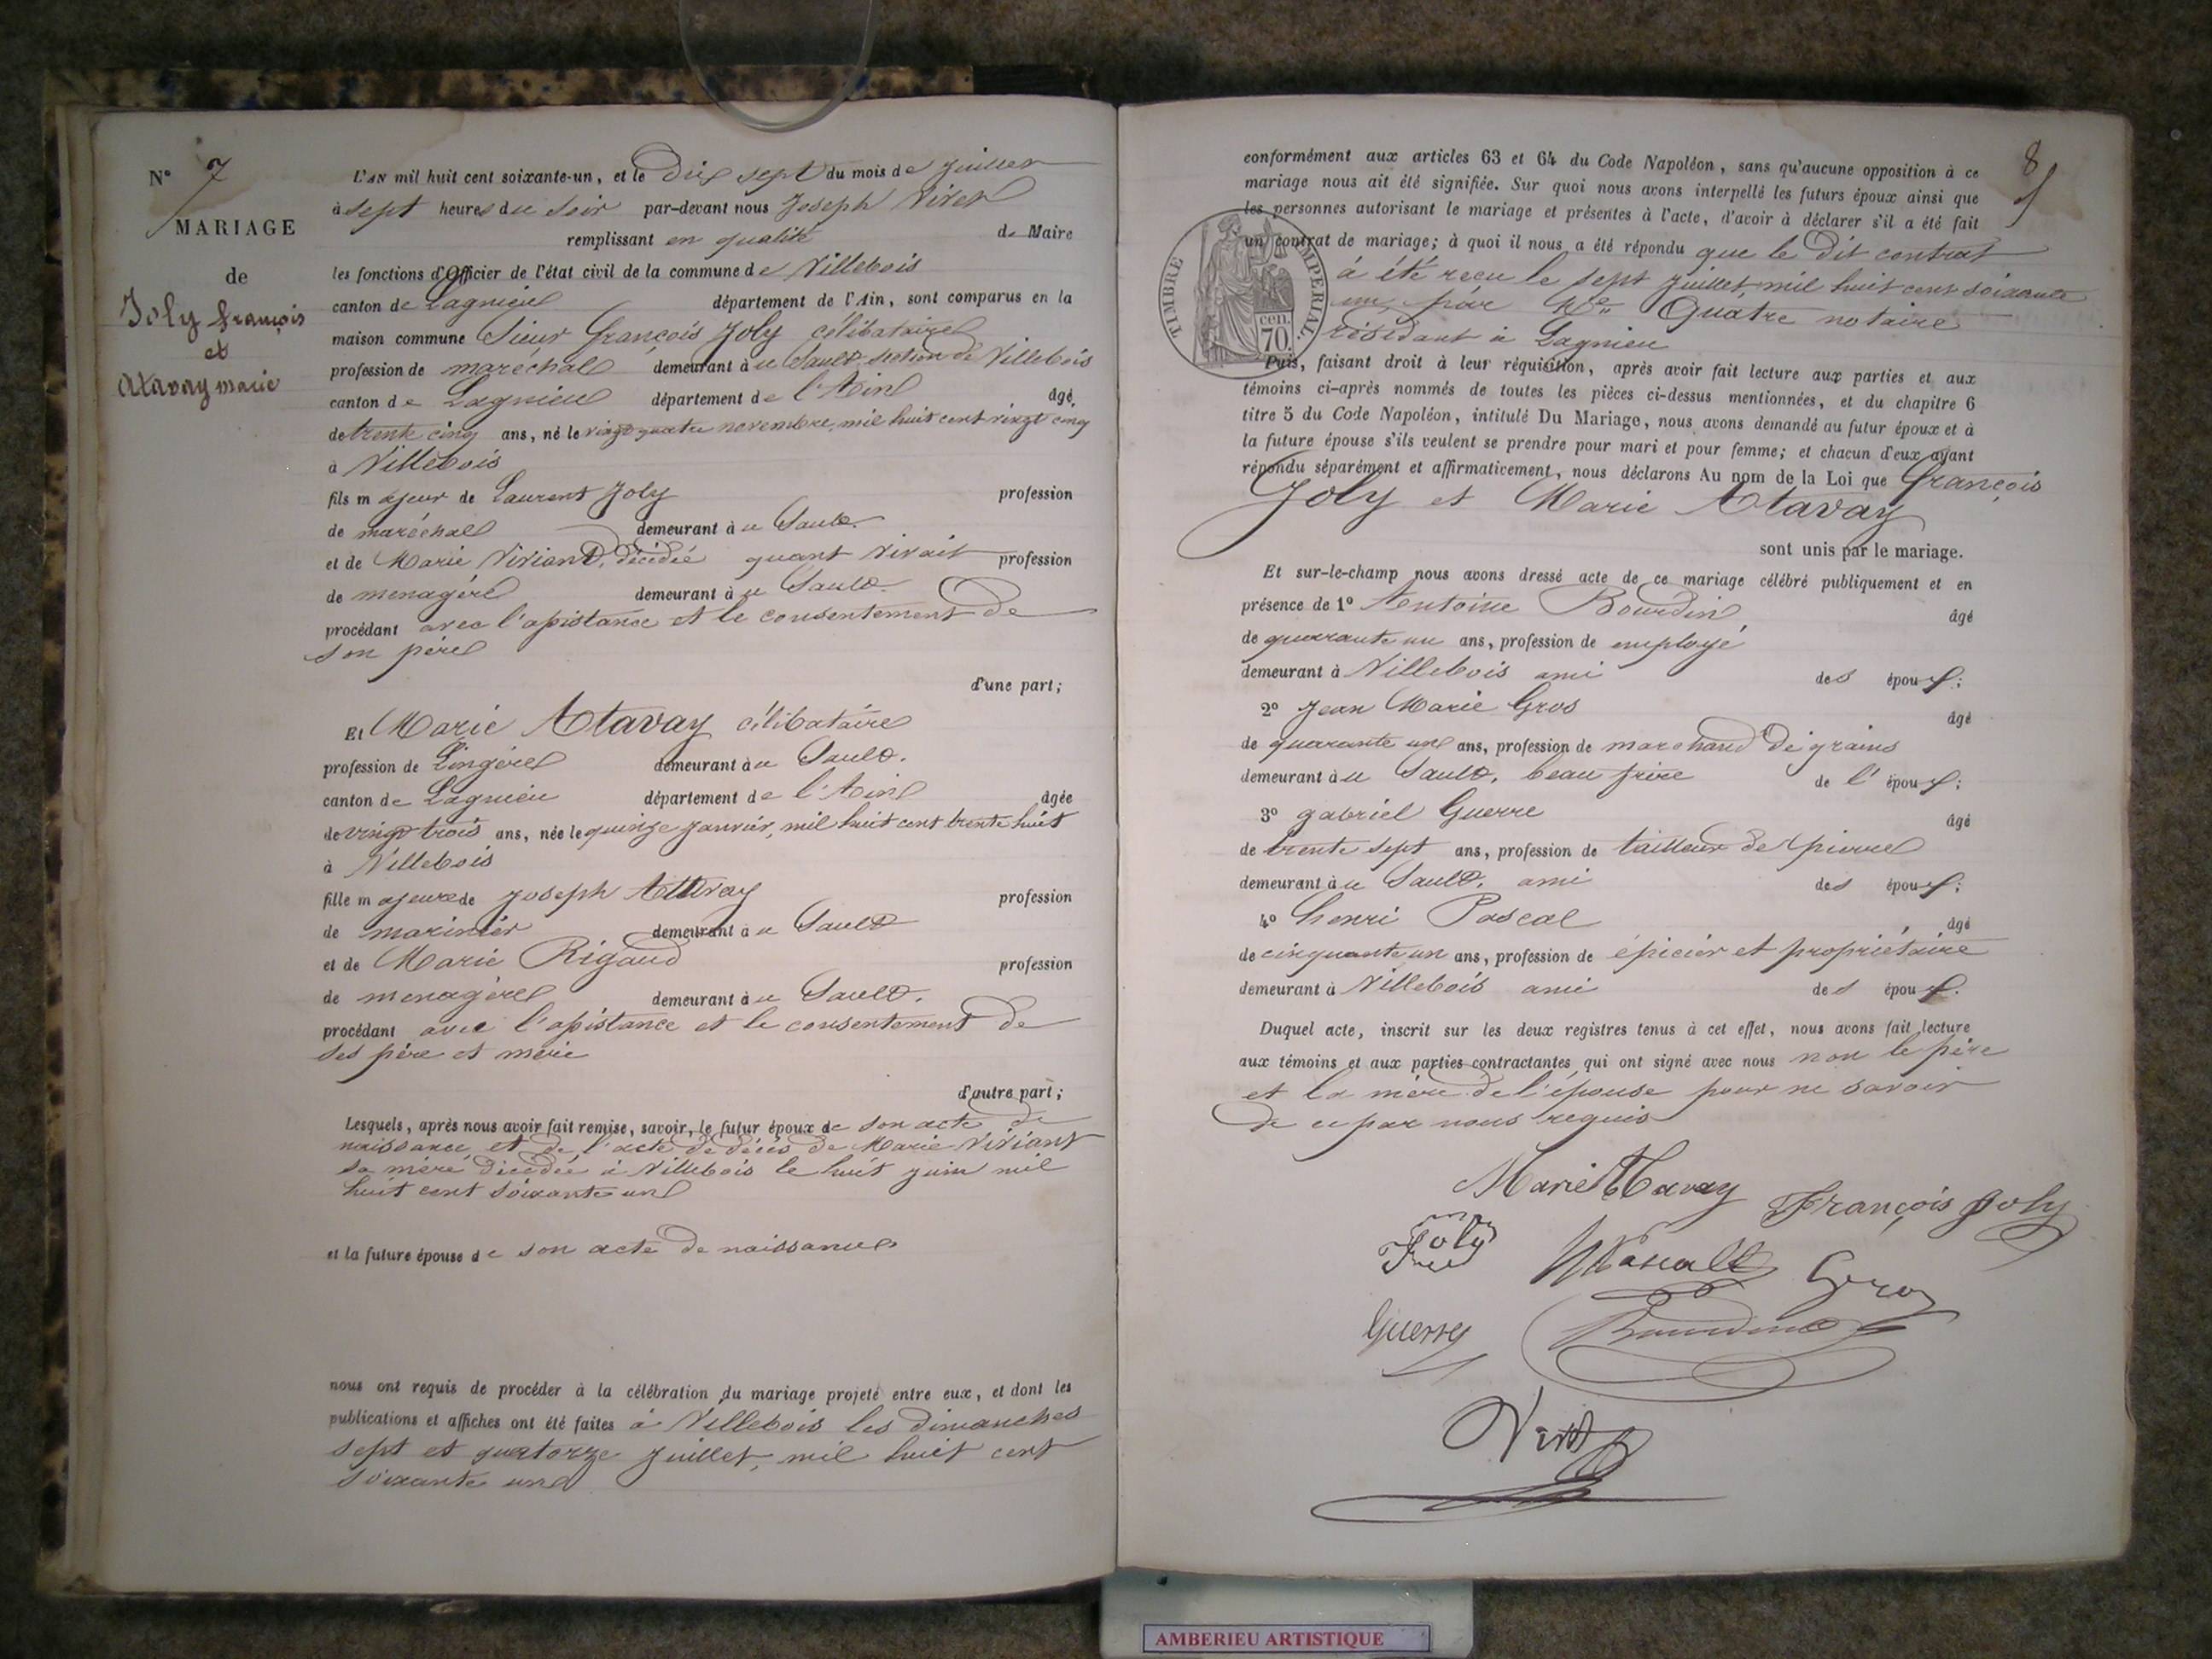 N° 7
MARIAGE
de
Joly françois
et
Atavay marie
L'AN mil huit cent soixante-un, et le Dix sept du mois de juillet
à sept heures du Soir par-devant nous Joseph Viret
remplissant en qualité de Maire
les fonctions d'Officier de l'état civil de la commune de Villebois
canton de Lagnieu département de l'Ain, sont comparus en la
maison commune Sieur François Joly célibataire
profession de maréchal demeurant à u Sault section de Villebois
canton de Lagnieu département de l'Ain âgé
de trente cinq ans, né le vingt quatre novembre, mil huit cent vingt cinq
à Villebois
fils majeur de Laurent Joly profession
de maréchal demeurant à u Sault.
et de Marie Viviant, décédée quant vivait profession
de menagère demeurant à u Sault.
procédant avec l'assistance et le consentement de
son père
d'une part;
Et Marie Atavay célibataire
profession de Lingère demeurant à u Sault.
canton de Lagnieu département de l'Ain âgée
de vingt trois ans, née le quinze janvier, mil huit cent trente huit
à Villebois
fille majeure de Joseph Attavay profession
de marinier demeurant à u Sault
et de Marie Rigaud profession
de menagère demeurant à u Sault.
procédant avec l'assistance et le consentement de
ses père et mère
d'autre part;
Lesquels, après nous avoir fait remise, savoir, le futur époux de son acte de
naissance et de l'acte de décès de Marie Viviant
sa mère décédée à Villebois le huit juin mil
huit cent soixante un
et la future épouse de son acte de naissance
nous ont requis de procéder à la célébration du mariage projeté entre eux, et dont les
publications et affiches ont été faites à Villebois les dimanches
sept et quatorze juillet, mil huit cent
soixante un
8
conformément aux articles 63 et 64 du Code Napoléon, sans qu'aucune opposition à ce
mariage nous ait été signifiée. Sur quoi nous avons interpellé les futurs époux ainsi que
les personnes autorisant le mariage et présentes à l'acte, d'avoir à déclarer s'il a été fait
un contrat de mariage; à quoi il nous a été répondu que le dit contrat
à été reçu le sept juillet mil huit cent soixante
un, par Me Quatre notaire
résidant à Lagnieu
TIMBRE IMPERIAL.
cen.
70.
Puis, faisant droit à leur réquisition, après avoir fait lecture aux parties et aux
témoins ci-après nommés de toutes les pièces ci-dessus mentionnées, et du chapitre 6
titre 5 du Code Napoléon, intitulé Du Mariage, nous avons demandé au futur époux et à
la future épouse s'ils veulent se prendre pour mari et pour femme; et chacun d'eux ayant
répondu séparément et affirmativement, nous déclarons Au nom de la Loi que François
Joly et Marie Atavay
sont unis par le mariage.
Et sur-le-champ nous avons dressé acte de ce mariage célébré publiquement et en
présence de 1° Antoine Bourdin âgé
de quarante un ans, profession de employé
demeurant à Villebois ami des époux;
2° Jean Marie Gros âgé
de quarante un ans, profession de marchand de grains
demeurant à u Sault, beau frère de l'époux;
3° gabriel Guerre âgé
de trente sept ans, profession de tailleur de pierre
demeurant à u Sault. ami des époux;
4° henri Pascal âgé
de cinquante un ans, profession de épicier et propriétaire
demeurant à Villebois ami des époux.
Duquel acte, inscrit sur les deux registres tenus à cet effet, nous avons fait lecture
aux témoins et aux parties contractantes qui ont signé avec nous non le père
et la mère de l'épouse pour ne savoir
de ce par nous requis
Marie Atavay François Joly
Joly
Pascal Gros
Guerre Bourdin
Viret
AMBERIEU ARTISTIQUE